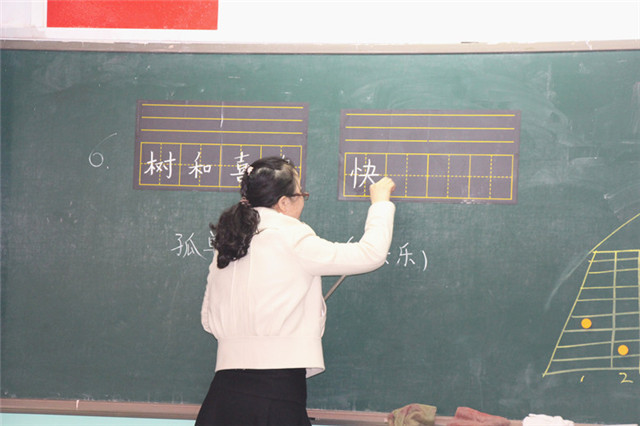 0. 树和喜 快
孤 乐)
1 2